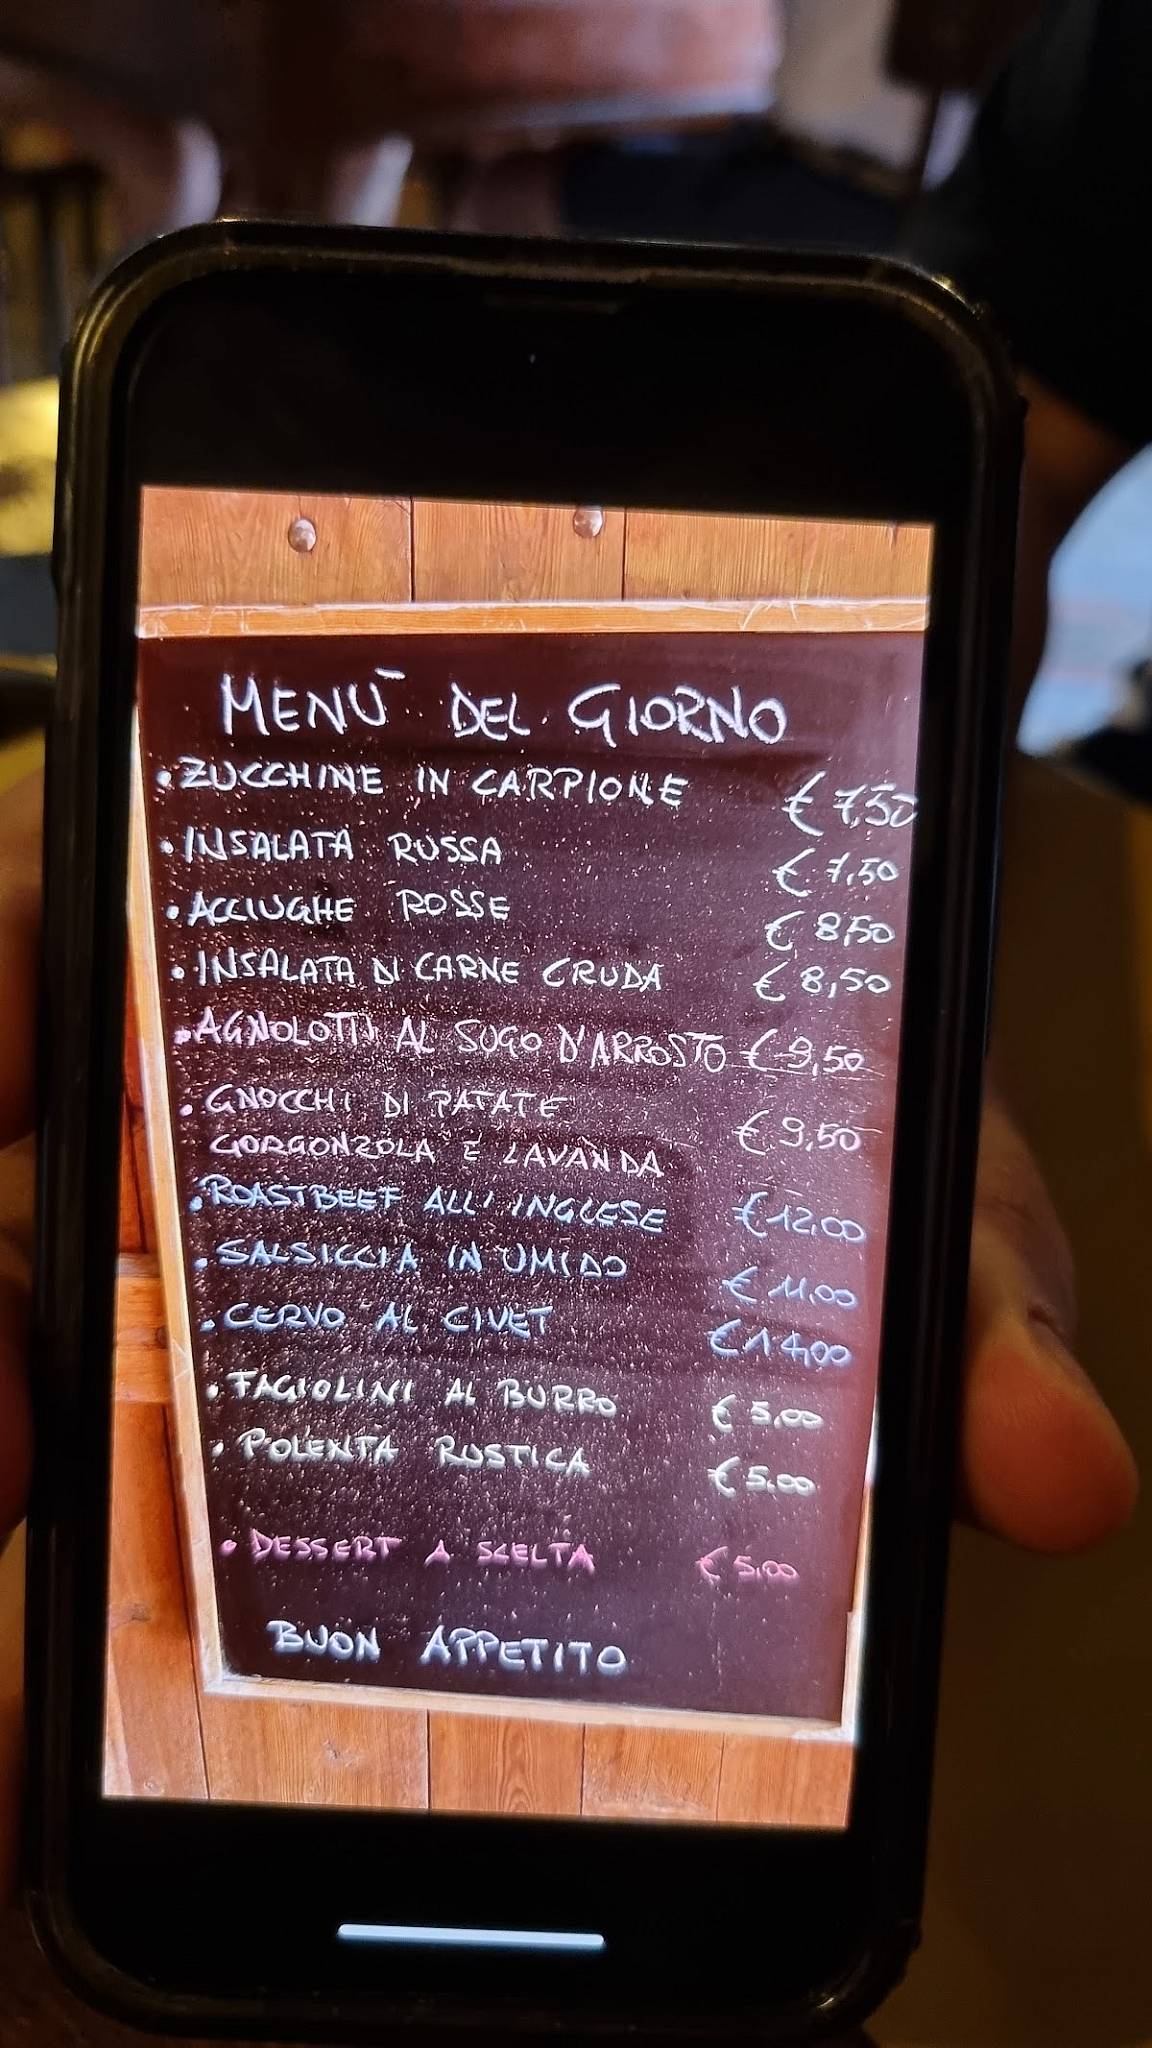 MENÙ DEL GIORNO
• ZUCCHINE IN CARPIONE € 7,50
• INSALATA RUSSA € 7,50
• ACCIUGHE ROSSE € 8,50
• INSALATA DI CARNE CRUDA € 8,50
• AGNOLOTTI AL SUGO D'ARROSTO € 9,50
• GNOCCHI DI PATATE
GORGONZOLA E LAVANDA € 9,50
• ROASTBEEF ALL'INGLESE € 12,00
• SALSICCIA IN UMIDO € 11,00
• CERVO AL CIVET € 14,00
• FAGIOLINI AL BURRO € 5,00
• POLENTA RUSTICA € 5,00
• DESSERT A SCELTA € 5,00
BUON APPETITO